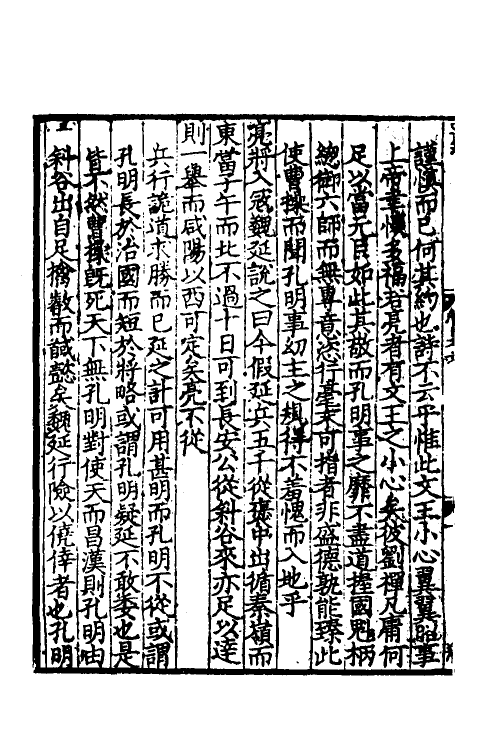 謹慎而已何其約也詩不云乎惟此文王小心翼翼昭事
上帝聿懷多福若亮者有文王之小心矣彼劉禪凡庸何
足以當元良如此其敬而孔明事之靡不盡道握國魁柄
總御六師而無專意恣行毫末可指者非盛德孰能臻此
使曹操而聞孔明事幼主之規得不羞愧而入地乎
亮將入寇魏延說之曰今假延兵五千從褒中出循秦嶺而
東當子午而北不過十日可到長安公從斜谷來亦足以達
則一舉而咸陽以西可定矣亮不從
兵行詭道求勝而已延之計可用甚明而孔明不從或謂
孔明長於治國而短於將略或謂孔明疑延不敢委也是
皆不然曹操既死天下無孔明對使天而昌漢則孔明由
斜谷出自足擒叡而馘懿矣魏延行險以僥倖者也孔明